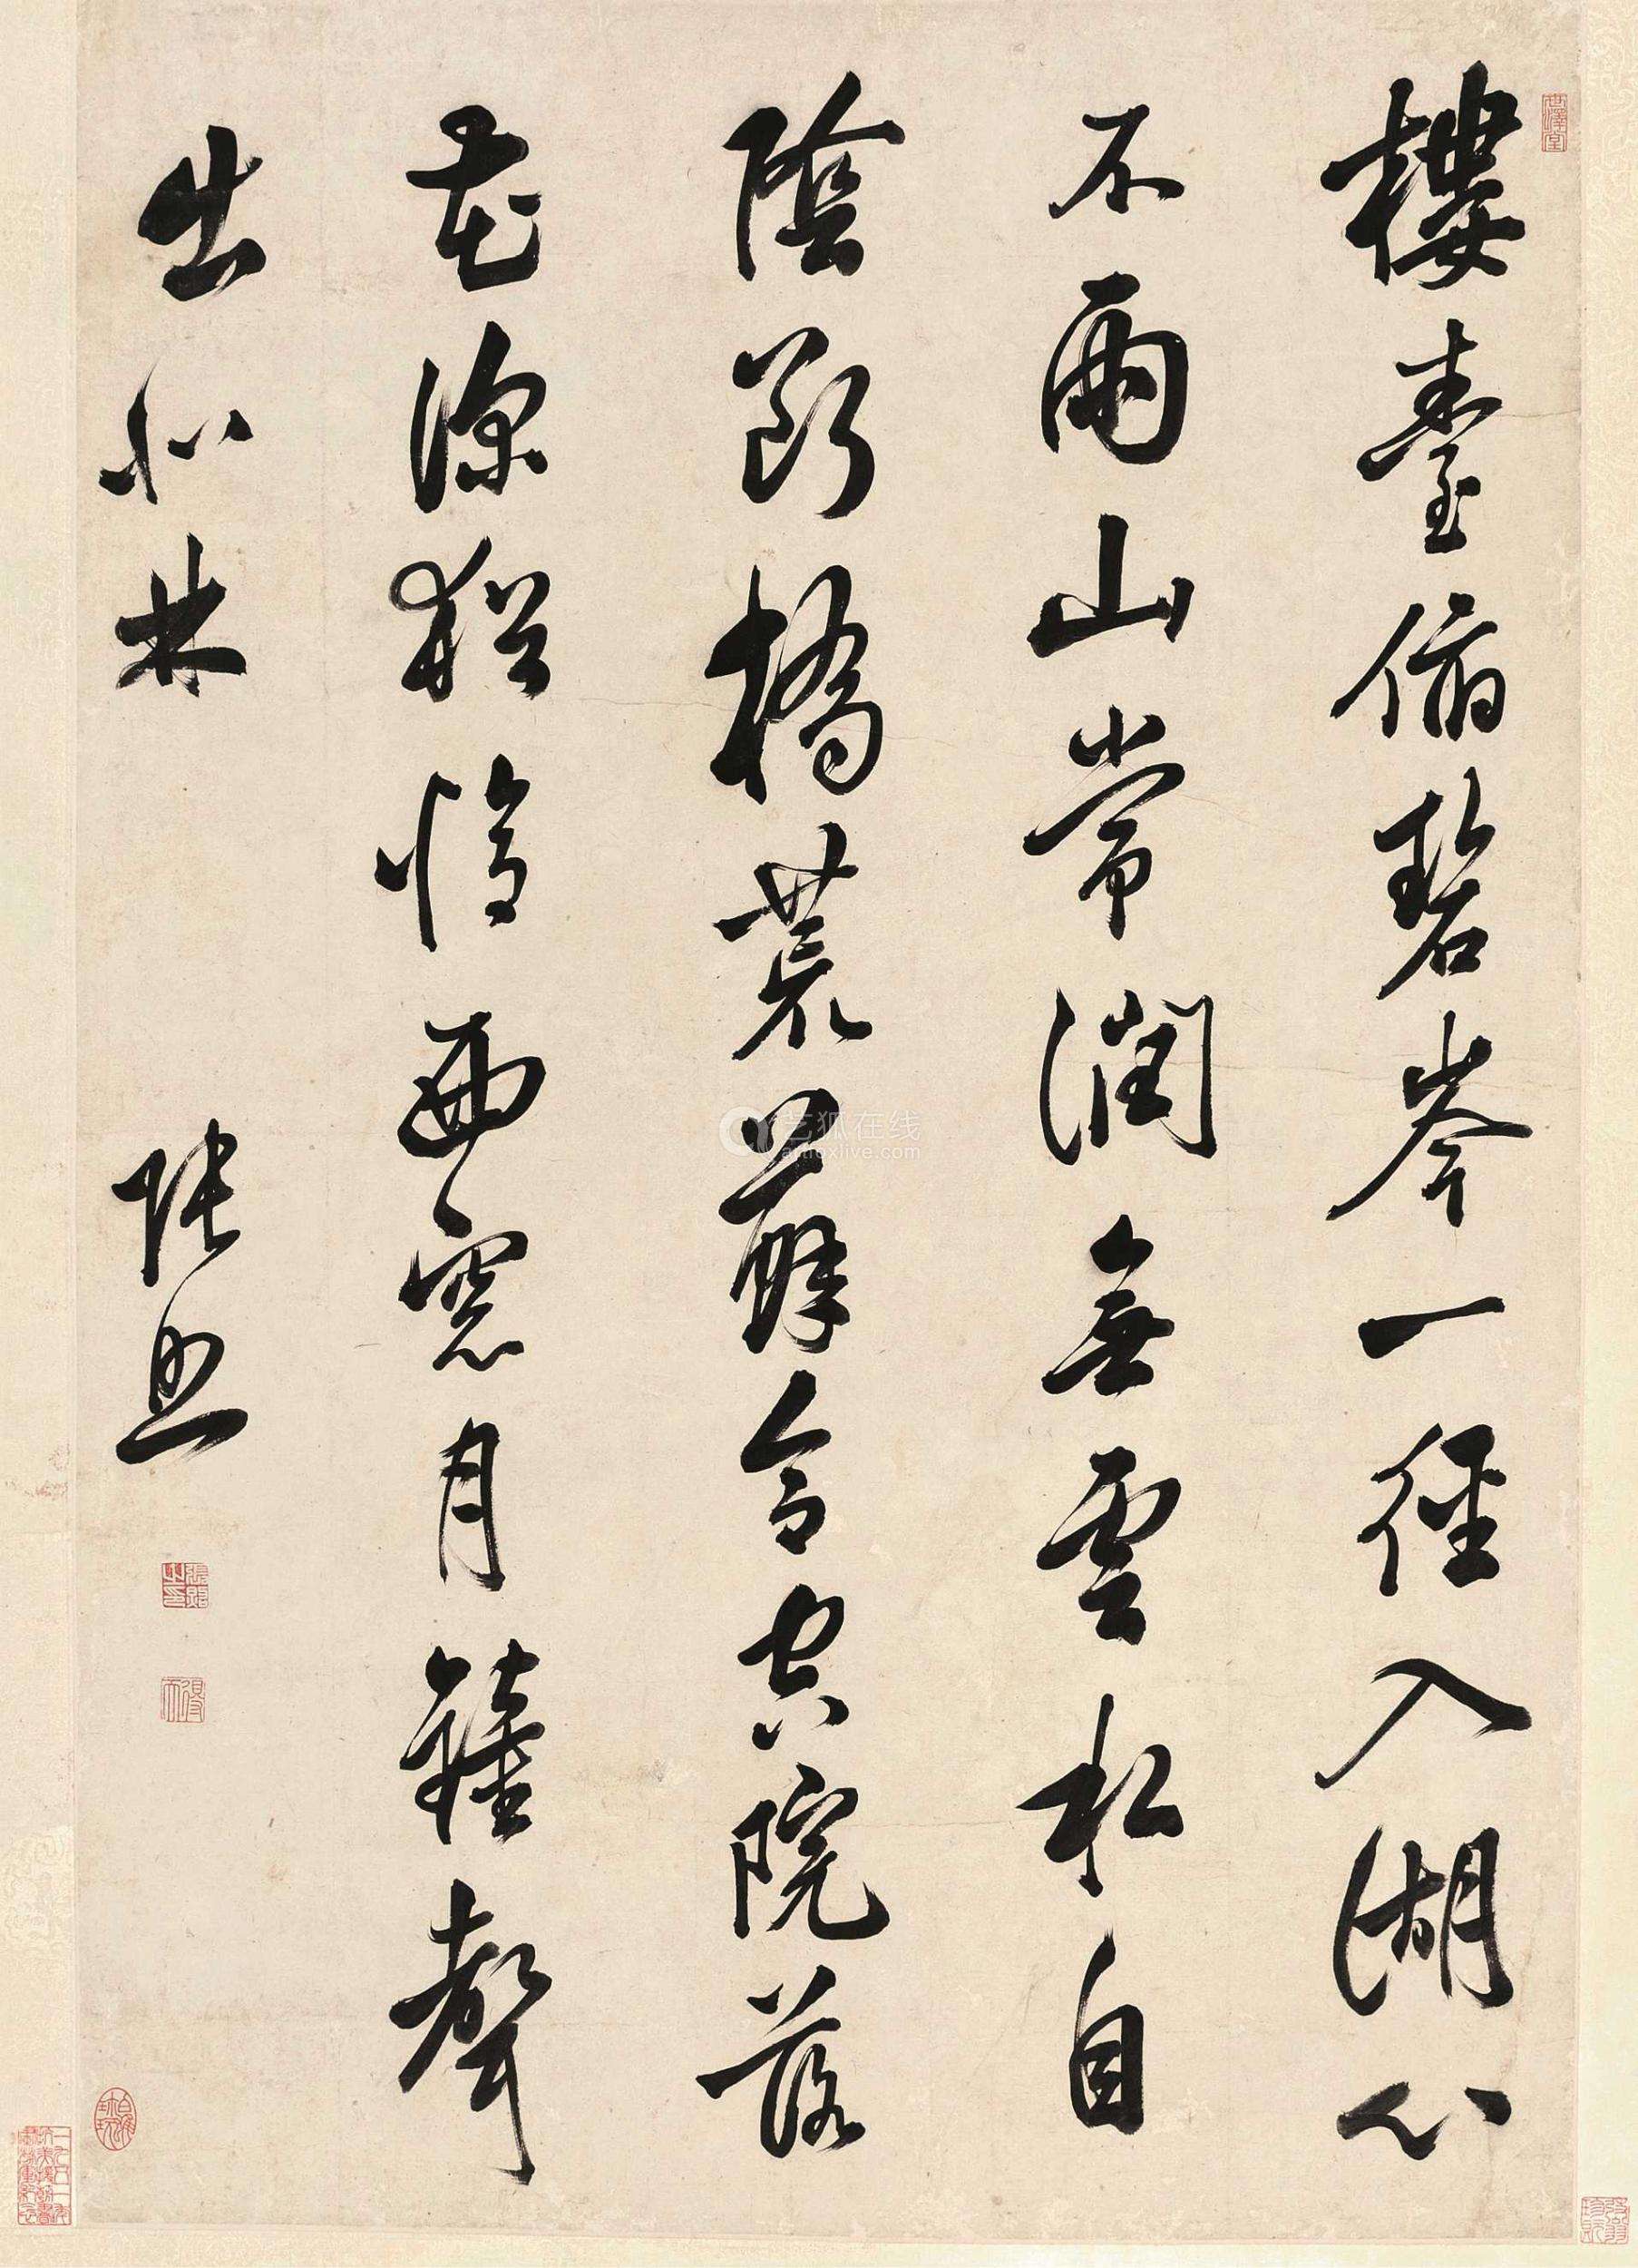 世澤堂
樓臺俯碧岑一徑入湖心
不雨山常潤無雲水自
陰斷橋荒蘚合空院落
花深猶憶西窓月鐘聲
出北林 張照
張照之印
得天
艺狐在线
artfoxlive.com